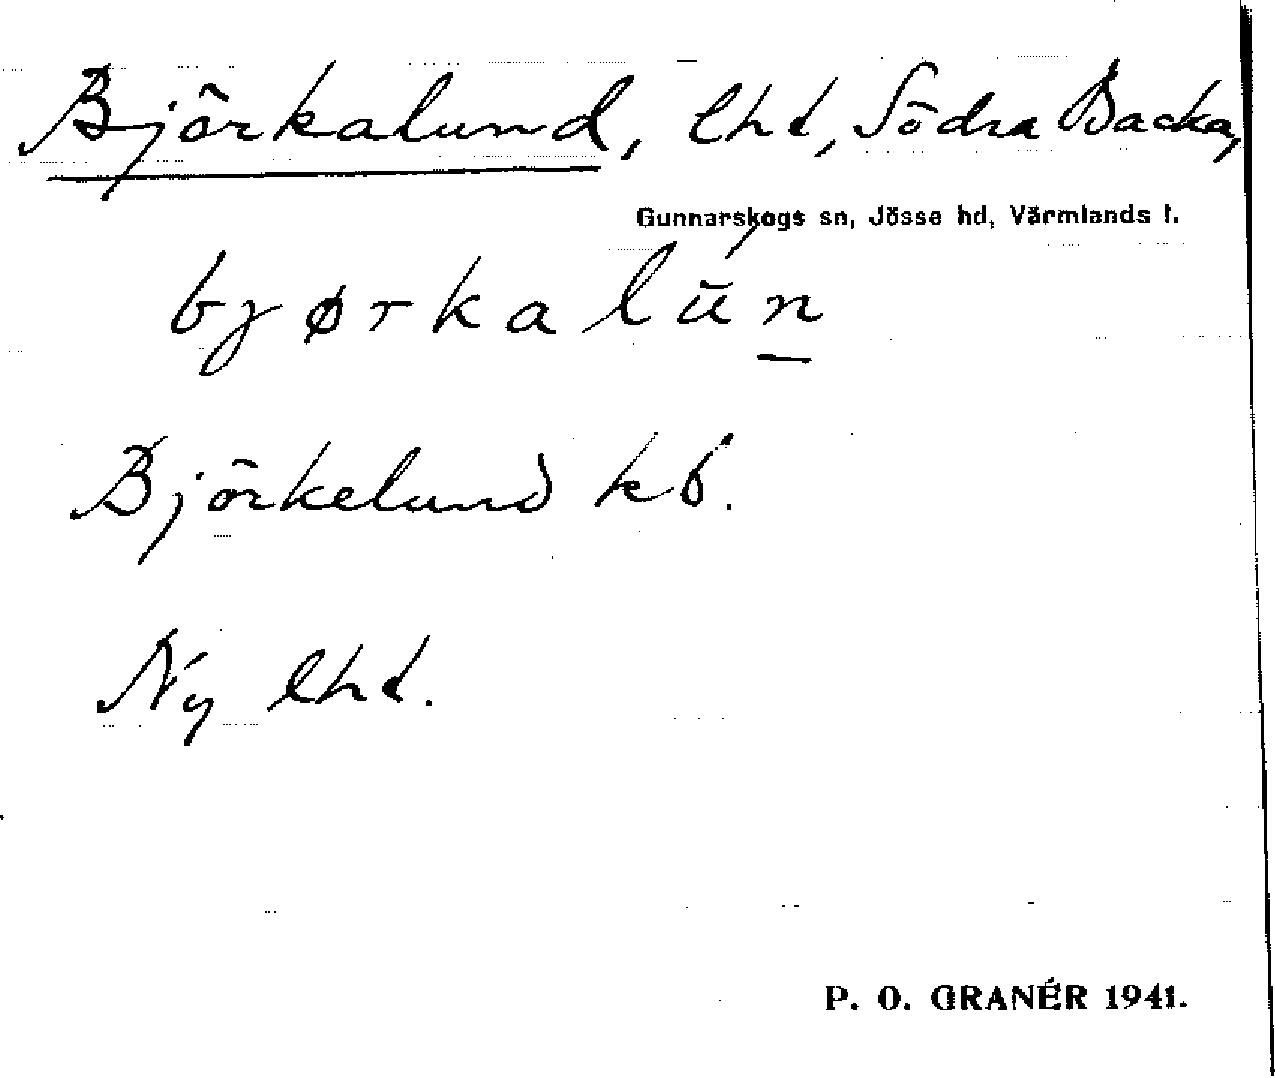 Björkalund, lht, Södra Backa,
Gunnarskogs sn, Jösse hd, Värmlands l.
bjørkalún
Björkelund kb.
Ny lht.
P. O. GRANÉR 1941.